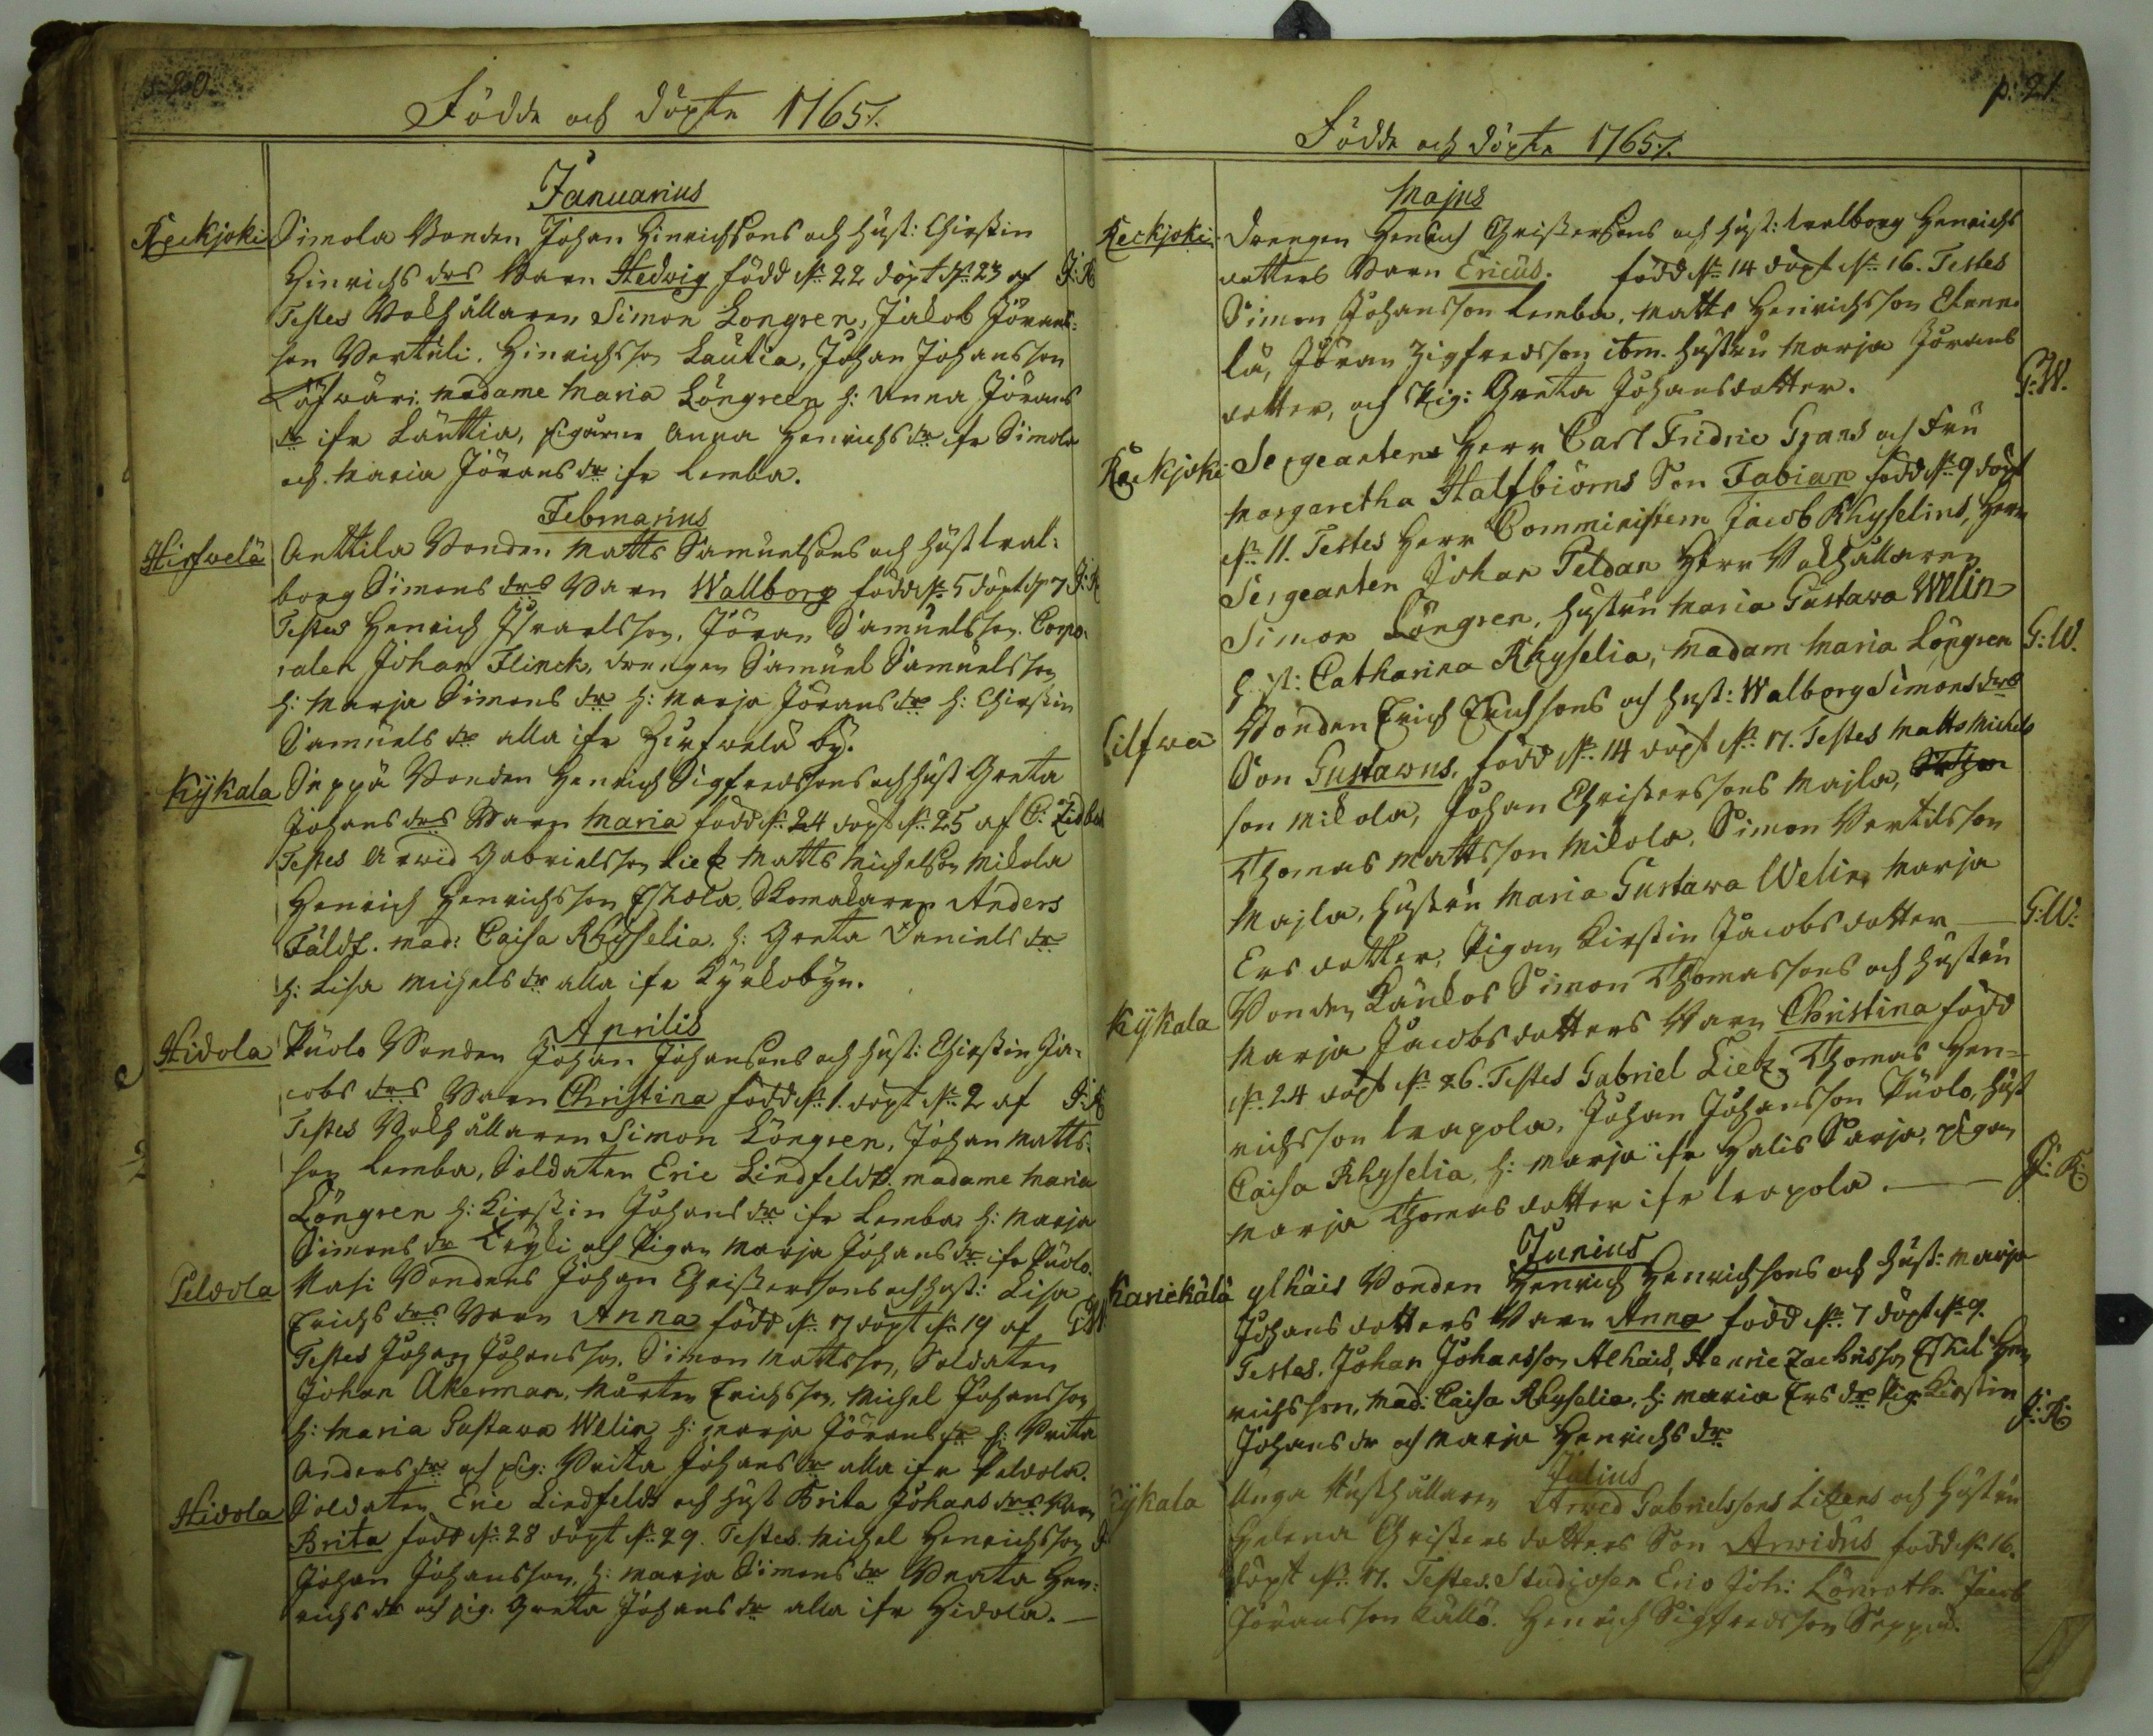 p: 20.
Födde och döpte 1765/.
Januarius
Keckjoki Simola Bonden Johan Hinrichsons och hust: Chirstin
Hinrichs drs Barn Hedwig född d. 22 döpt d. 23 af J:K
Testes Bokhållaren Simon Longren, Jakob Jörans-
son Bertuli. Hinrichsson Lautia, Johan Johansson
madame Maria Löngreen h: Anna Jörans
dr ifr Lauttia, pigorne Anna Henrichs dr ifr Simola
och Maria Jörans dr ifr Lemba.
Februarius
Hirfwelä Anttila Bonden Matts Samuelsons och hust Wal-
borg Simons drs Barn Wallborg född d. 5 döpt d. 7 J:K
Testes Henrich Israelsson, Jöran Samuelsson. Corpo-
ralen Johan Flinck, drengen Samuel Samuelsson
h: Marja Simons dr h: Marja Jörans dr h: Chirstin
Samuels dr alla ifr Hirfwelä by.
Kykala Seppä Bonden Henrich Sigfredssons och hust Greta
Johans drs Barn Maria född d. 24 döpt d. 25 af C: Zidbeck
Testes Arwid Gabrielsson Lietz Matts Michelson Mikola
Henrich Henrichsson Eskola, Skomakaren Anders
Fäldt. mad: Caisa Rhyselia. h: Greta Daniels dr
h: Lisa Michels dr alla ifr Kyrkobyn.
Aprilis
Hidola Puolo Bonden Johan Johansons och hust: Chirstin Ja-
cobs drs Barn Christina född d. 1. döpt d. 2 af J:K
Testes Bokhållaren Simon Löngren, Johan Matts-
son Lemba, Soldaten Eric Lindfeldt. madame Maria
Löngren h: Kirstin Johans dr ifr Lemba h: Marja
Simons dr och Pigan Marja Johans dr ifr Puolo.
Peldola Masi Bondens Johan Christerssons och hust: Lisa
Erichs drs Barn Anna född d. 17 döpt d. 19 af G:W
Testes Johan Johansson. Simon Mattsson, Soldaten
Johan Åkerman, Mårten Erichsson, Michel Johansson
h: Maria Gustava Welin h: Marja Jörans dr h: Brita
Anders dr och pig: Brita Johans dr alla ifr Peldola.
Hidola Soldaten Eric Lindfeldt och hust Brita Johans drs Barn
Brita född d. 28 döpt d. 29. Testes Michel Henrichsson
Johan Johansson, h: Marja Simons dr Beata Hen-
richs dr och pig. Greta Johans dr alla ifr Hidola.
p: 21.
Födde och döpte 1765/.
Majus
Keckjoki Drengen Henrich Christersons och hust: Walborg Henrichs
dotters Barn Ericus. född d. 14 döpt d. 16. Testes
Simon Johansson Lemba, Matts Henrichsson
lä, Jöran Zigfredsson ibm. hustru Marja Jörans
dotter, och Pig: Greta Johansdotter. G:W.
Keckjoki Sergeantens Herr Carl Fridric Grans och Fru
Margaretha Stalfbiörns Son Fabian född d. 9 döpt
d. 11. Testes Herr Comministern Jacob Rhyselius, Herr
Sergeanten Johan Peldan Herr Bokhållaren
Simon Löngren, hustru Maria Gustava Welin
h st: Catharina Rhyselia, Madam Maria Löngren G:W.
Lilfwa Bonden Erich Erichsons och hust: Walborg Simons drs
Son Gustavus, född d. 14 döpt d. 17. Testes Matts Michels
son Mikola, Johan Christerssons Majla,
Thomas Mattsson Mikola, Simon Bertilsson
Majla, hustru Maria Gustava Welin, Marja
Ers dotter, Pigan Kirstin Jacobs dotter G:W:
Kykala Bonden Kaukos Simon Thomassons och hustru
Marja Jacobsdotters Barn Christina född
d. 24 döpt d. 26. Testes Gabriel Lietz, Thomas Hen-
richsson Trapola, Johan Johansson Puolo, hust
Caisa Rhyselia, h: Marja ifr Halis Parja, pigan
Marja Thomas dotter ifr Trapola. J:K:
Junius
Karickälä ylhäis Bonden Henrich Henrichsons och hust: Marja
Johans dotters Barn Anna född d. 7 döpt d. 9.
Testes. Johan Johansson Alhais, Henric Zachrisson Eskel Hen
richsson, Mad: Caisa Rhyselia, h: Maria Ers dr Pig: Kirstin
Johans dr och Marja Henrichs dr J:K:
Julius
Kykala Unga Rusthållaren Arwed Gabrielssons Litzens och hustru
Helena Christers dotters Son Arvidus född d. 16.
döpt d. 17. Testes. Studiosen Eric Joh: Lönroth. Jacob
Jöransson Källö. Henrich Sigfredsson Seppä.